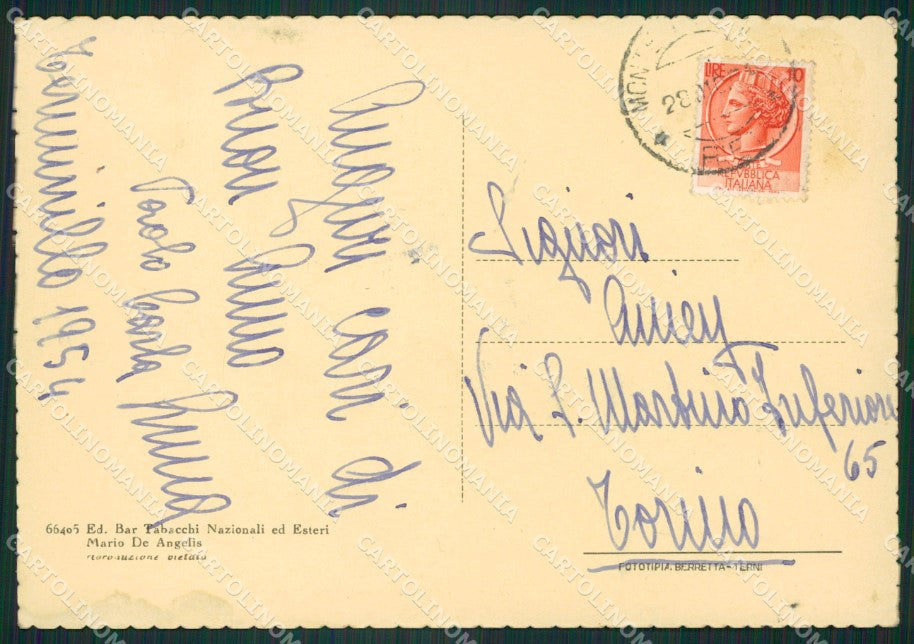 Auguri cari di
Buon Anno
Paolo Carla
Terminillo 1954
LIRE 10
REPVBBLICA
ITALIANA
Signori
Amiey
Via S. Martino Inferiore
65
Torino
66405 Ed. Bar Tabacchi Nazionali ed Esteri
Mario De Angelis
riproduzione vietata
FOTOTIPIA BERRETTA - TERNI
CARTOLINOMANIA